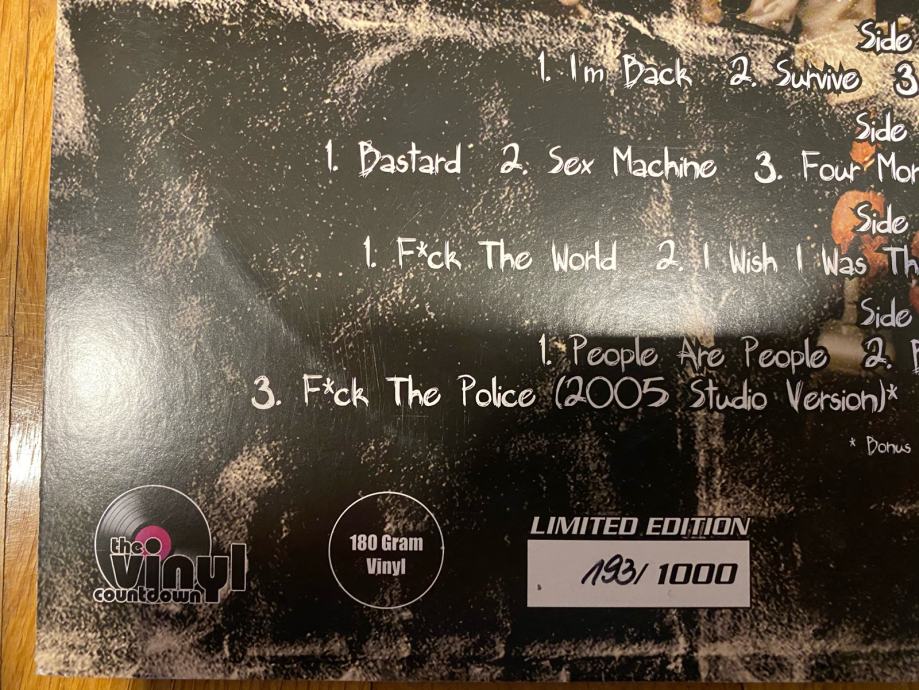 Side
1. I'm Back 2. Survive 3
Side
1. Bastard 2. Sex Machine 3. Four Mor
Side
1. F*ck The World 2. I Wish I Was Th
Side
1. People Are People 2.
3. F*ck The Police (2005 Studio Version)*
* Bonus
the
vinyl
countdown
180 Gram
Vinyl
LIMITED EDITION
193/1000